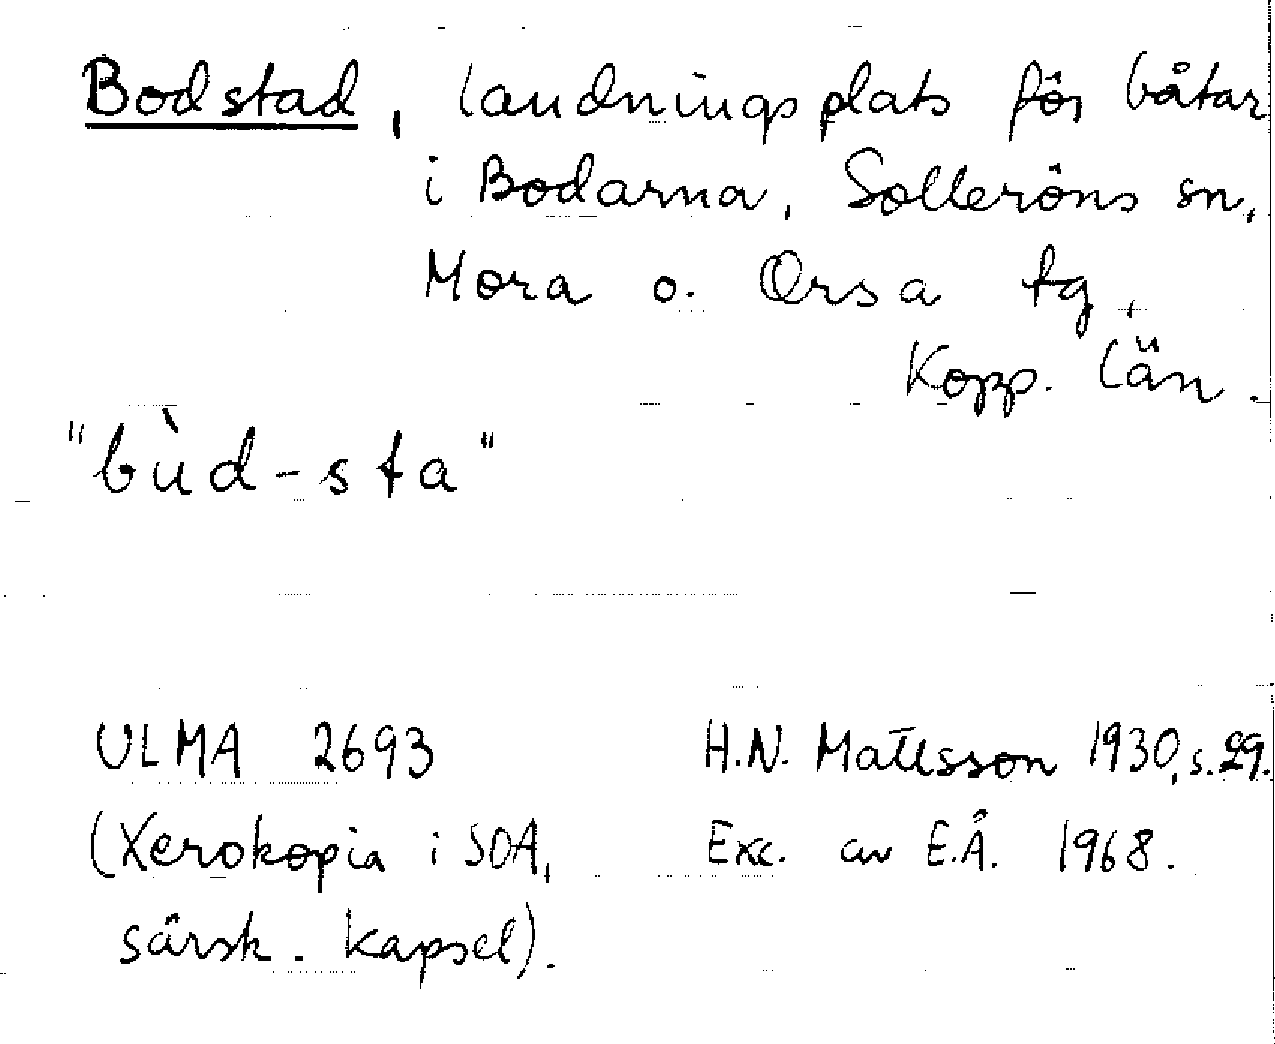 Bodstad, landningsplats för båtar
i Bodarna, Solleröns sn,
Mora o. Orsa tg,
Kopp. län.
"bùd-sta"
ULMA 2693 H.N. Mattsson 1930, s. 29.
(Xerokopia i SOA, Exc. av E.Å. 1968.
särsk. kapsel).